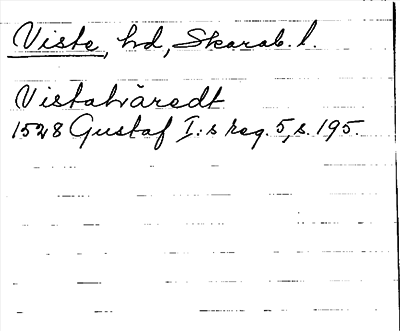 Viste, hd, Skarab. l.
Vistahäredt
1528 Gustaf I:s reg. 5, s. 195.